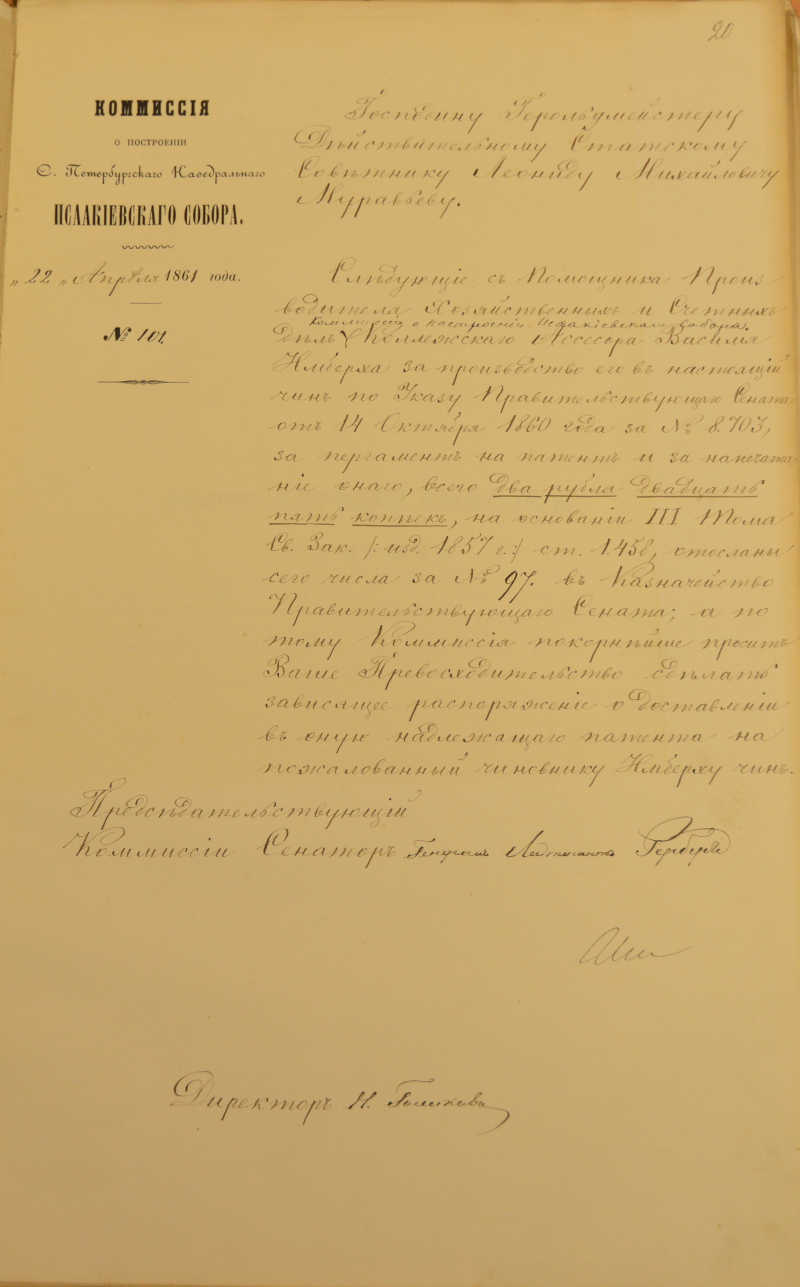 20
КОММИССІЯ
О ПОСТРОЕНІИ
С. Петербургскаго Каѳедральнаго
ИСААКІЕВСКАГО СОБОРА.
„ 22 „ Апрѣля 1861 года.
№ 101
Господину Герольдмейстеру
Дѣйствительному Статскому
Совѣтнику Леониду Михайловичу
Муравьеву.
Слѣдующіе съ Помощника Произ
водителя Хозяйственныхъ и Счетныхъ
Коммиссіи о построеніи Исаакіевскаго Собора,
Дѣлъ Коллежскаго Ассесора Василія
Имберха за производство его въ настоящій
чинъ по Указу Правительствующаго Сената
отъ 14 Октября 1860 года за № 8.703,
за пергаментъ на патентъ и за напечата
ніе онаго, всего два рубля двадцать
пять копѣекъ, на основаніи III Тома
Св. Зак. /: изд. 1857 г. :/ ст. 1458, отосланы
сего числа за № 97. въ Казначейство
Правительствующаго Сената; а по
тому Коммиссія покорнѣйше проситъ
Ваше Превосходительство сдѣлать
зависящее распоряженіе о доставленіи
въ оную надлежащаго патента на
пожалованный чиновнику Имберху чинъ.
Предсѣдательствующій
Коммиссіи Сенаторъ
Директоръ Н.